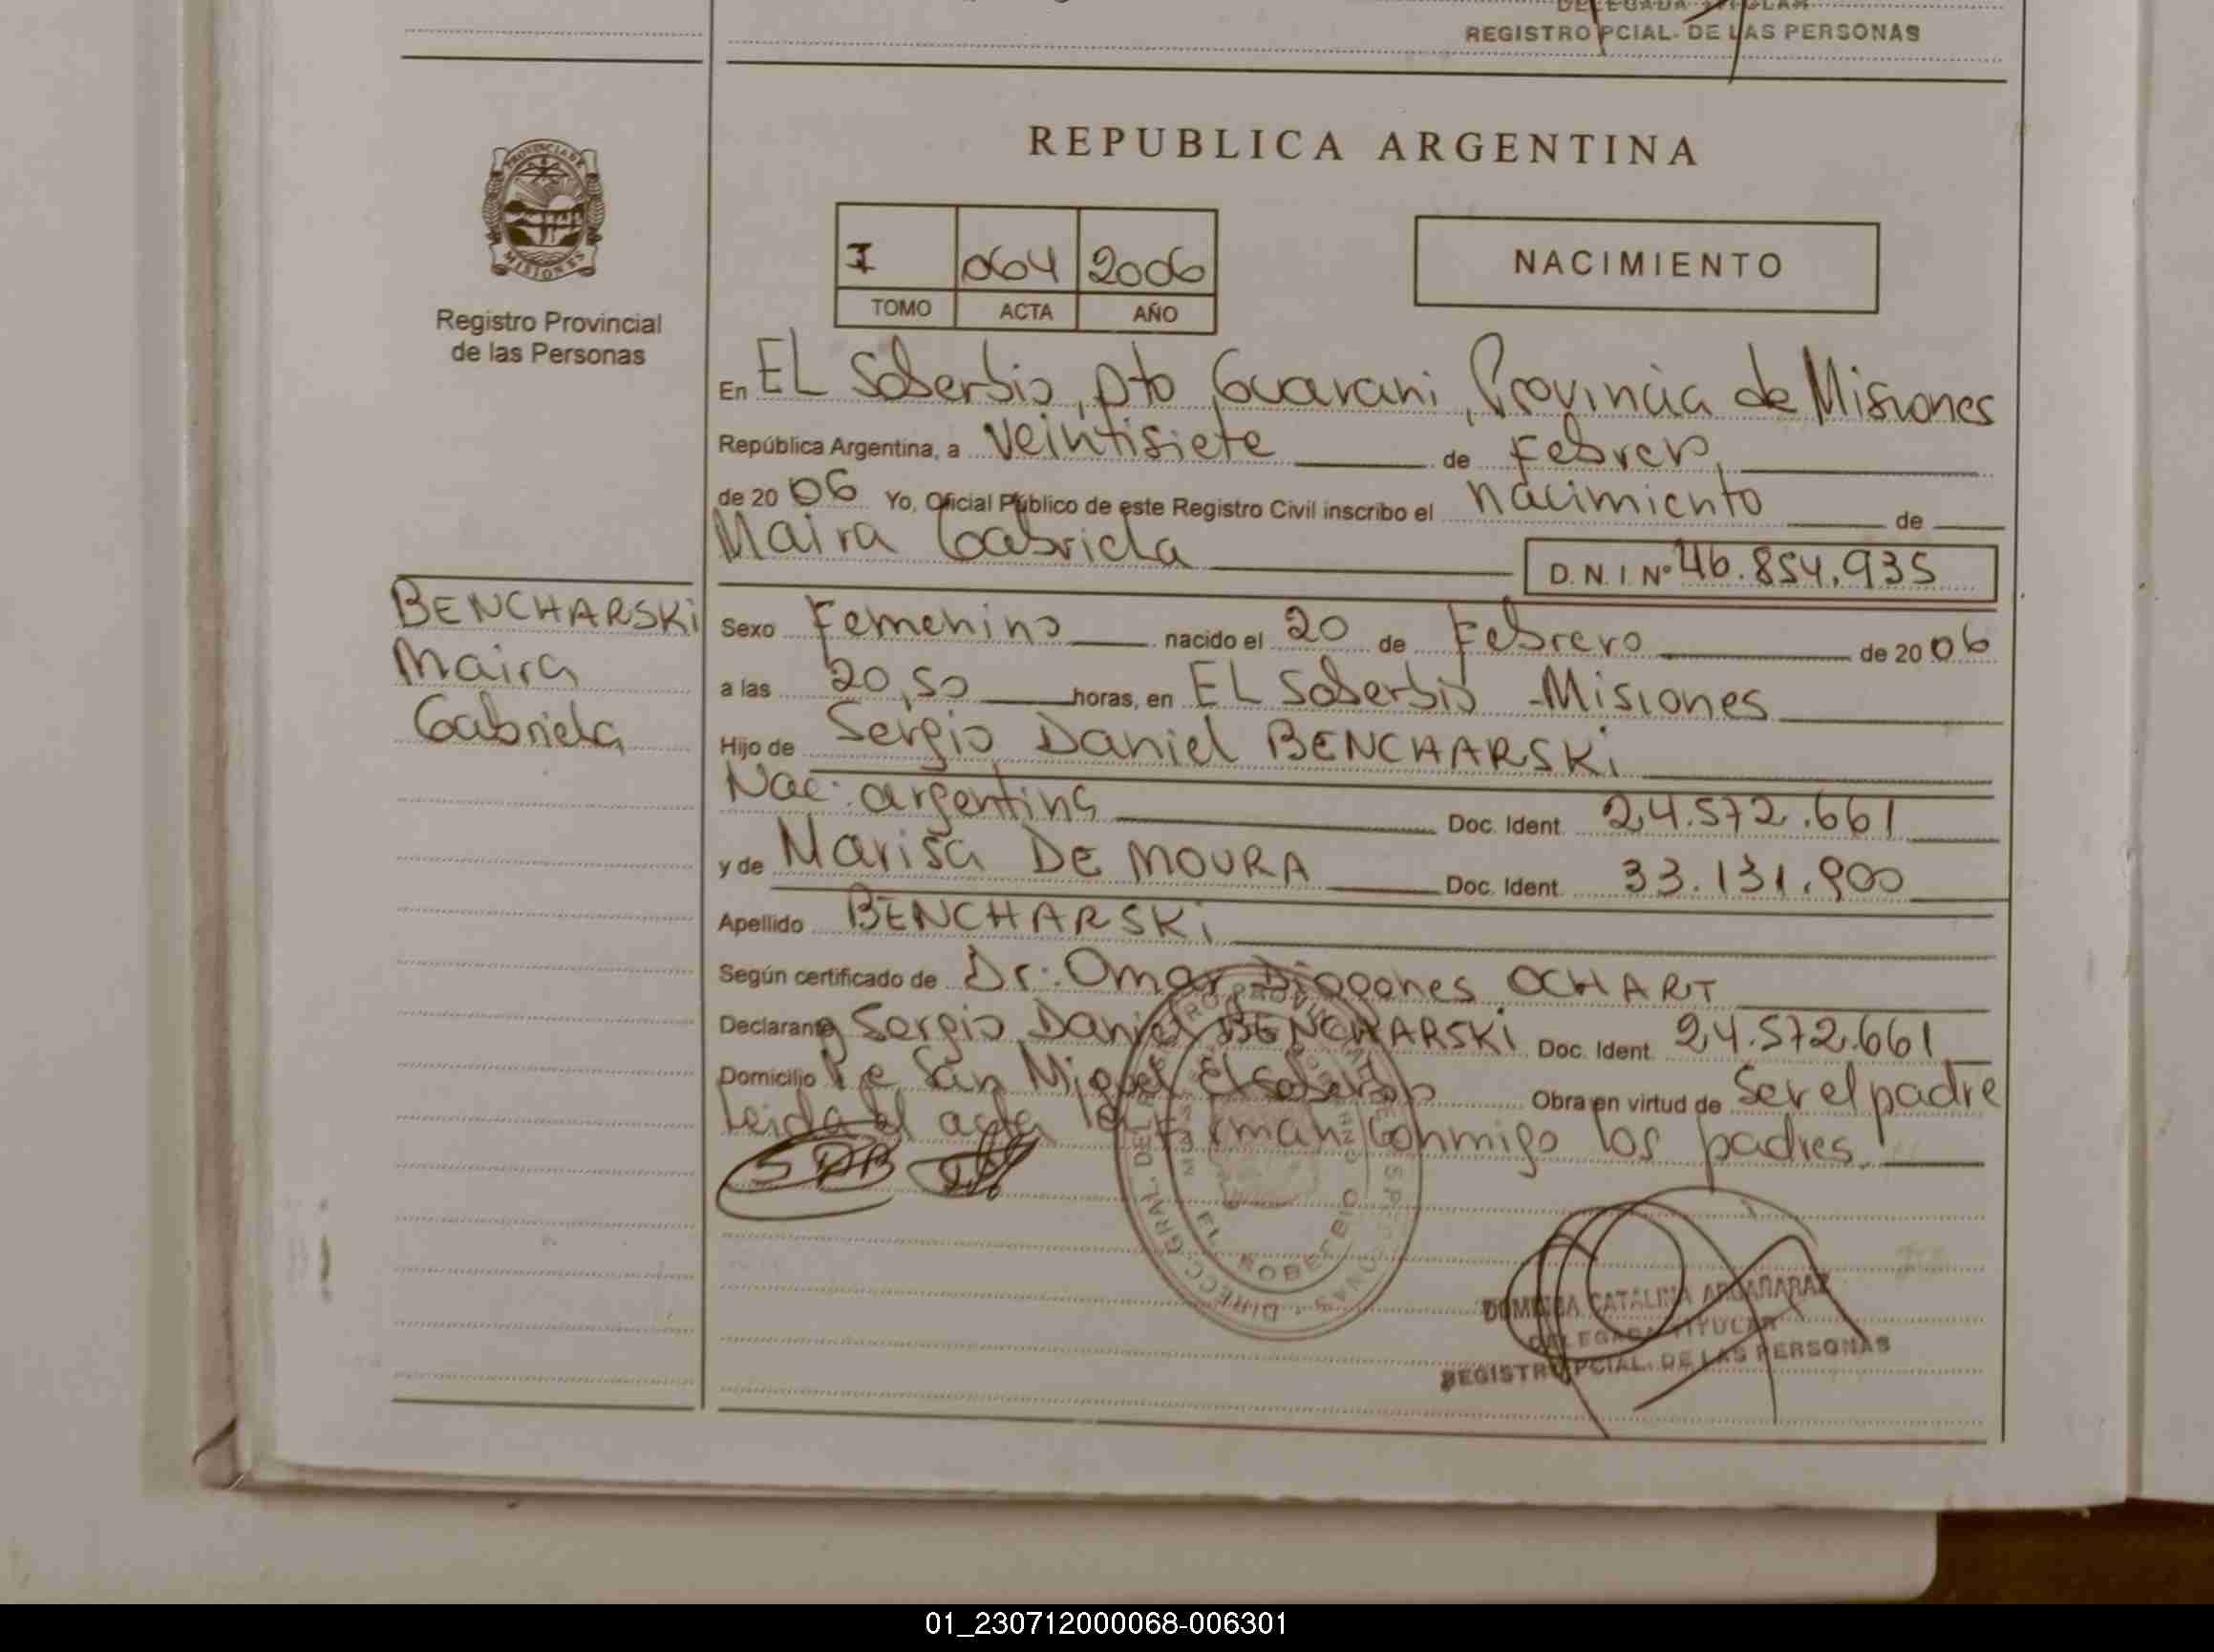 DELEGADA TITULAR
REGISTRO PCIAL. DE LAS PERSONAS
PROVINCIA DE
MISIONES
Registro Provincial
de las Personas
REPUBLICA ARGENTINA
I 064 2006
TOMO ACTA AÑO
NACIMIENTO
En EL Soberbio, Dto Guarani, Provincia de Misiones
República Argentina, a veintisiete de Febrero,
de 2006 Yo, Oficial Público de este Registro Civil inscribo el nacimiento de
Maira Gabriela
D. N. I. Nº 46.854.935
BENCHARSKi
Maira
Gabriela
Sexo Femenino nacido el 20 de Febrero de 2006
a las 20,50 horas, en EL Soberbio - Misiones
Hijo de Sergio Daniel BENCHARSKi
Nac: argentina Doc. Ident. 24.572.661
y de Marisa DE MOURA Doc. Ident. 33.131.900
Apellido BENCHARSKi
Según certificado de Dr. Omar Diogenes OCHART
Declarante Sergio Daniel BENCHARSKi Doc. Ident. 24.572.661
Domicilio Pje San Miguel El Soberbio Obra en virtud de Ser el padre
Leida el acta la firman conmigo los padres.
SDB
DIRECC. GRAL. DEL REGISTRO PROVINCIAL DE LAS PERSONAS
EL SOBERBIO
CATALINA ARGAÑARAZ
DELEGADA TITULAR
REGISTRO PCIAL. DE LAS PERSONAS
01_230712000068-006301